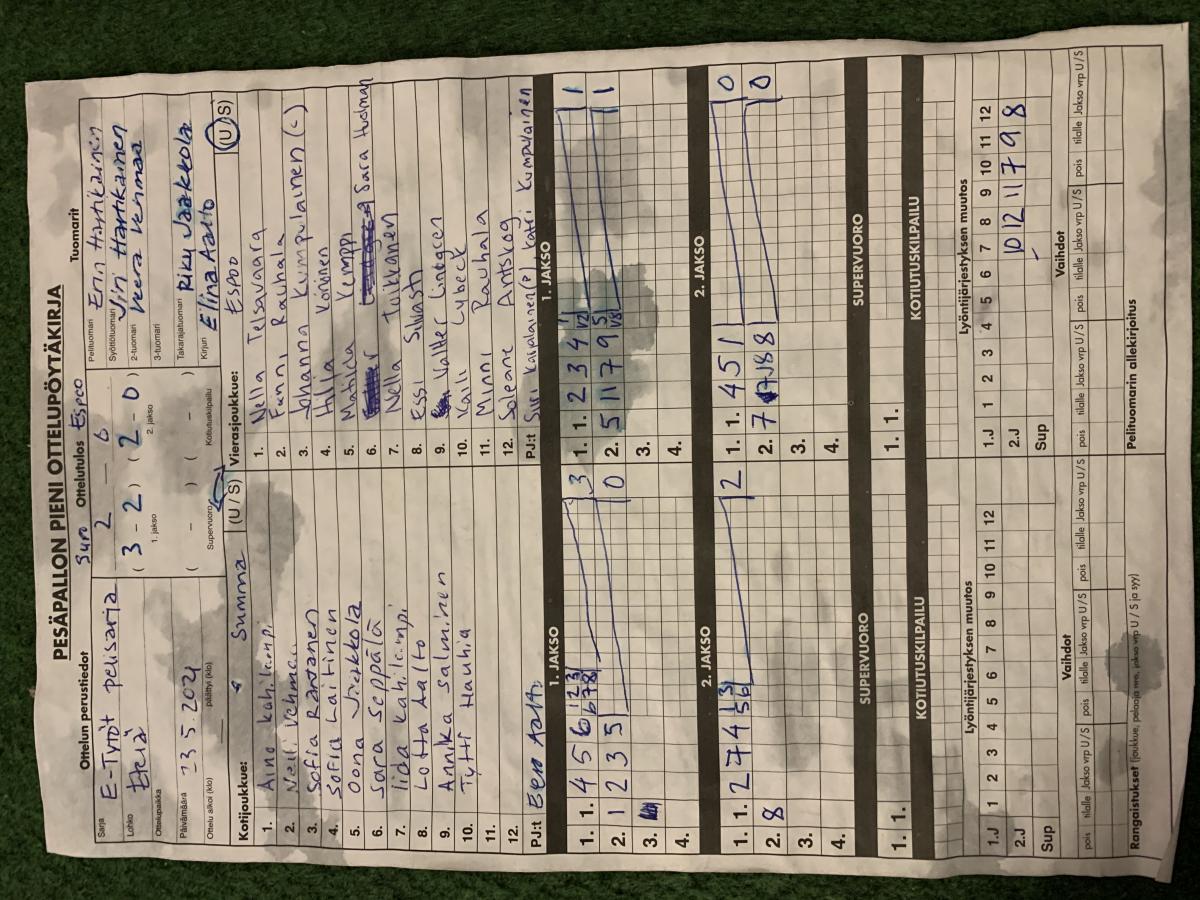 PESÄPALLON PIENI OTTELUPÖYTÄKIRJA
Ottelun perustiedot
Sarja E-Tytöt pelisarja
Lohko Etelä
Ottelupaikka
Päivämäärä 23.5.2021
Ottelu alkoi (klo) päättyi (klo)
Ottelutulos Espoo
2 – 0
( 3 – 2 ) ( 2 – 0 )
1. jakso 2. jakso
( – ) ( – )
Supervuoro Kotiutuskilpailu
Tuomarit
Pelituomari Erin Hartikainen
Syöttötuomari Hartikainen
2-tuomari Veera Venmaa
3-tuomari
Takarajatuomari Riku Jaakkola
Kirjuri Elina Aalto
Kotijoukkue: Summa (U / S)
1. Aino
2.
3. Sofia Rantanen
4. Sofia Laitinen
5. Oona Jaakkola
6. Sara Seppälä
7. Iida
8. Lotta Aalto
9. Annika Salminen
10. Tytti Tauhia
11.
12.
PJ:t Eero Aalto
Vierasjoukkue: Espoo (U / S)
1. Nella Telsavaara
2. Fanni Rauhala
3. Johanna Kumpulainen (c)
4. Hilla Vörinen
5. Matilda Kemppi
6. Sara Huolman
7. Nella Tukkanen
8. Essi Silvasti
9. Valtter
10. Kaili Lybeck
11. Minni Rauhala
12. Soleane Antskog
PJ:t Suvi Karpalainen(P), Katri Kumpulainen
1. JAKSO
1. 1. 4 5 6 1 2 3 6 7 8 3
2. 1 2 3 5 0
3.
4.
1. JAKSO
1. 1. 2 3 4 1
2. 5 11 7 9 5 1
3.
4.
2. JAKSO
1. 1. 2 7 4 4 1 3 5 6 2
2. 8
3.
4.
2. JAKSO
1. 1. 4 5 1 0
2. 7 8 8 0
3.
4.
SUPERVUORO
1. 1.
SUPERVUORO
1. 1.
KOTIUTUSKILPAILU
KOTIUTUSKILPAILU
Lyöntijärjestyksen muutos
1.J 1 2 3 4 5 6 7 8 9 10 11 12
2.J
Sup
Lyöntijärjestyksen muutos
1.J 1 2 3 4 5 6 7 8 9 10 11 12
2.J 10 12 11 7 9 8
Sup
Vaihdot
pois tilalle Jakso vrp U / S pois tilalle Jakso vrp U / S pois tilalle Jakso vrp U / S
Vaihdot
pois tilalle Jakso vrp U / S pois tilalle Jakso vrp U / S pois tilalle Jakso vrp U / S
Rangaistukset (joukkue, pelaaja nro, jakso vrp U / S ja syy)
Pelituomarin allekirjoitus